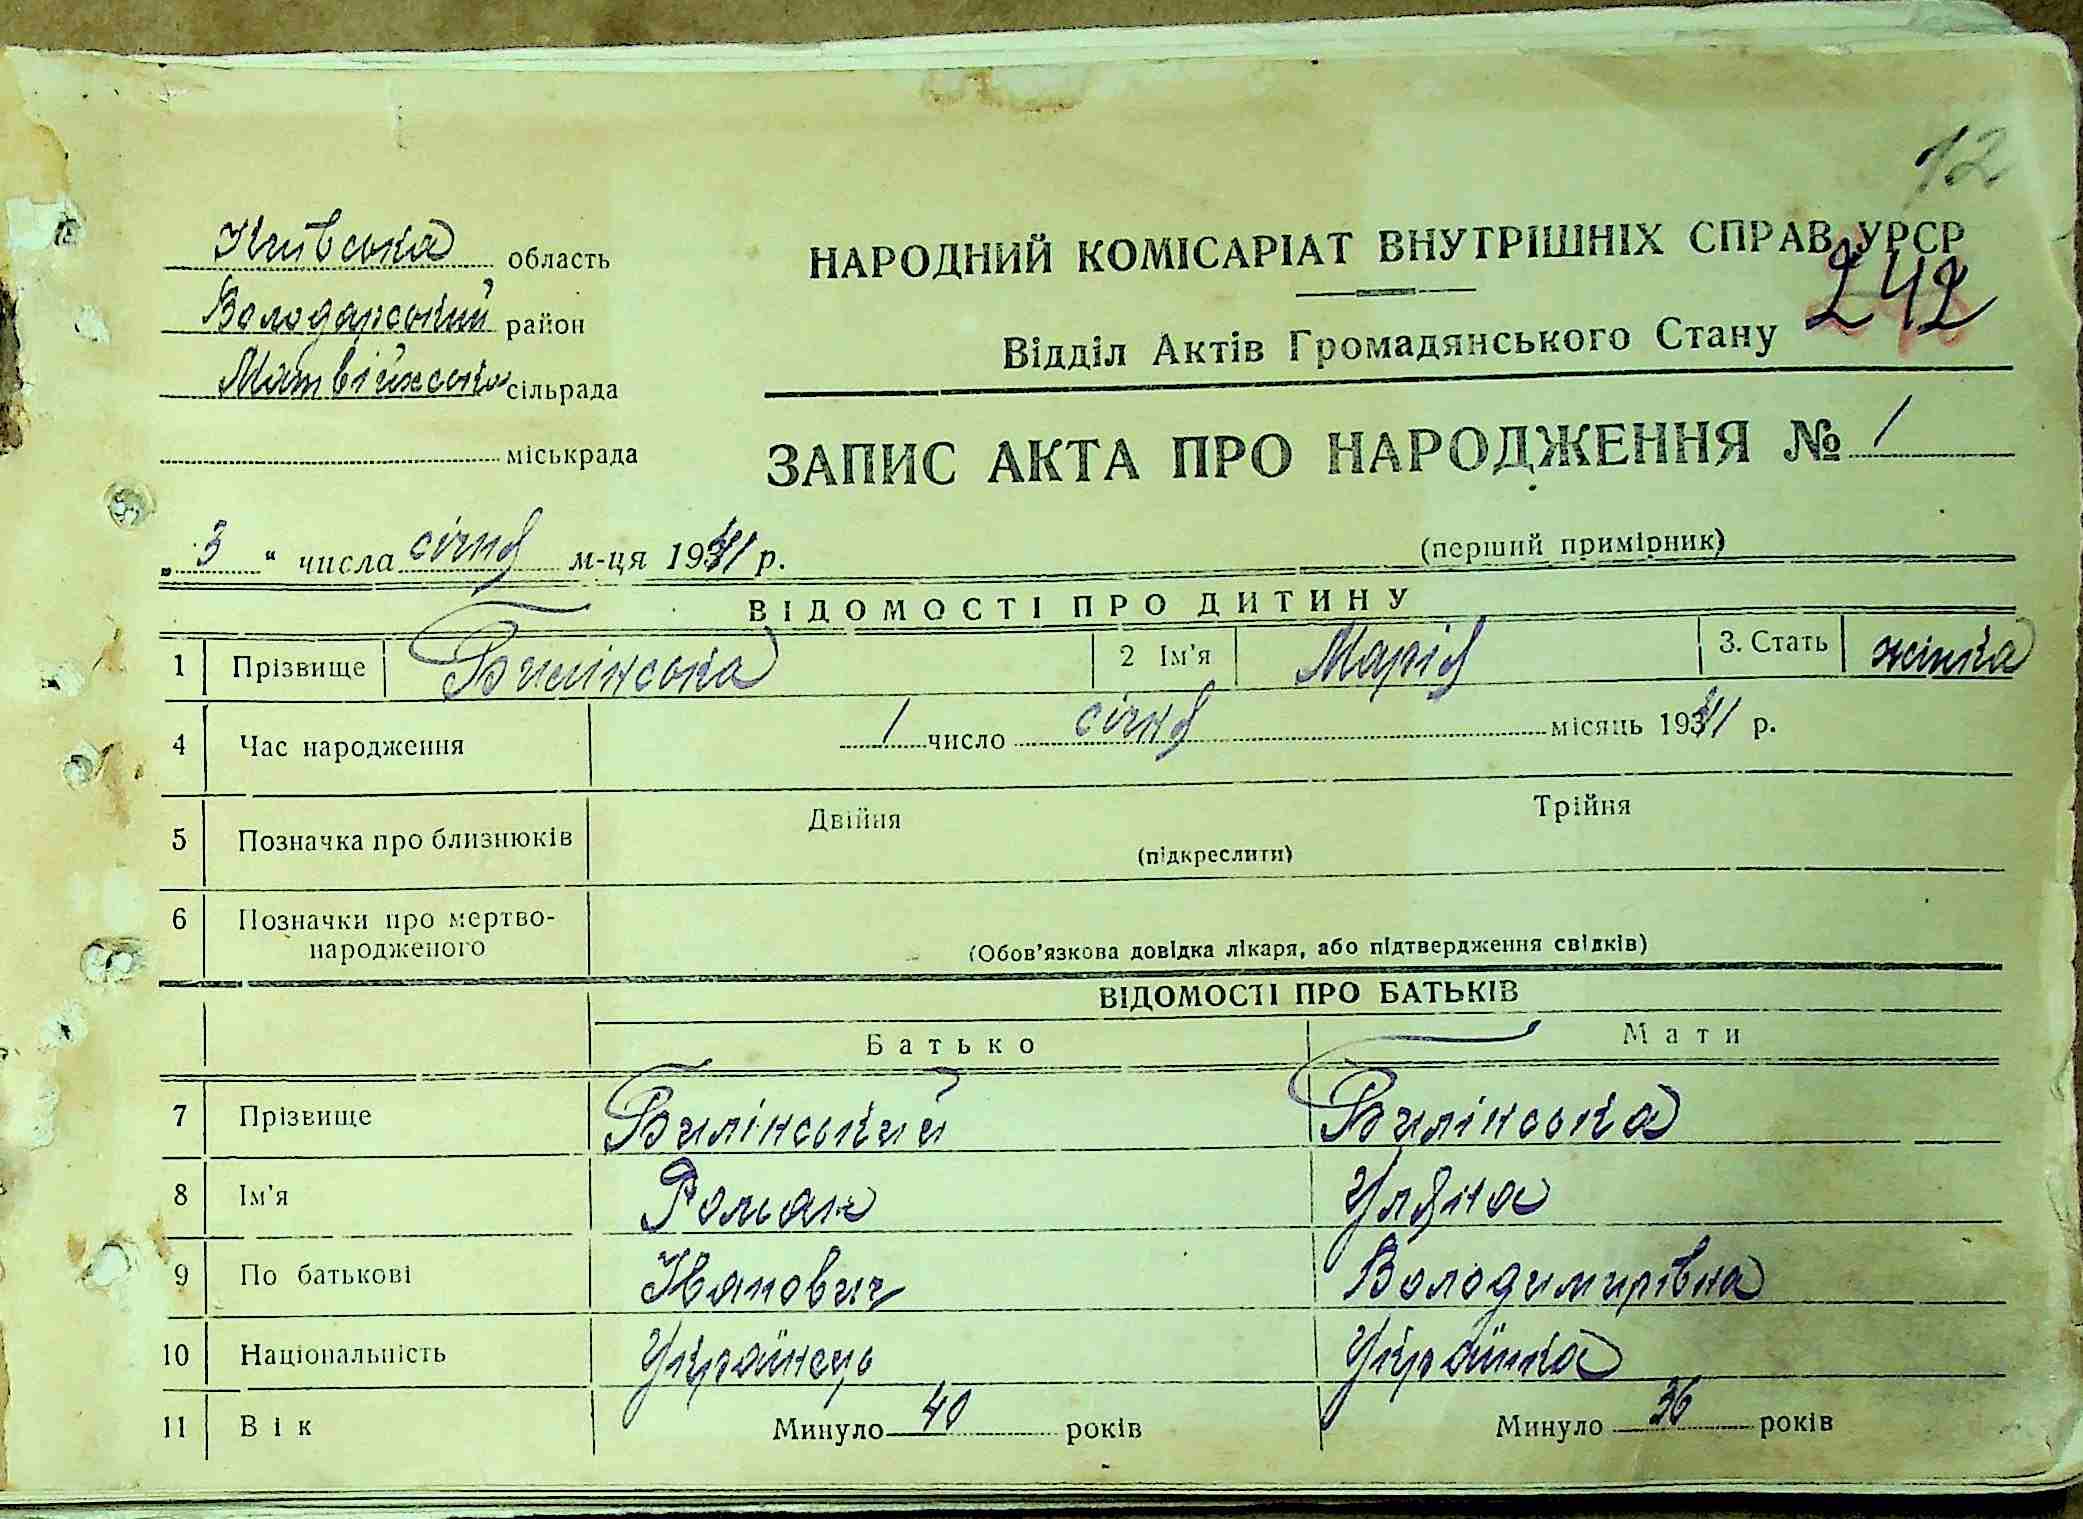 12
Київська область
НАРОДНИЙ КОМІСАРІАТ ВНУТРІШНІХ СПРАВ УРСР
242
Володарський район
Відділ Актів Громадянського Стану
Матвіїнська сільрада
міськрада
ЗАПИС АКТА ПРО НАРОДЖЕННЯ № 1
„3“ числа січня м-ця 1941 р.
(перший примірник)
ВІДОМОСТІ ПРО ДИТИНУ
1 Прізвище Билінська 2 Ім'я Марія 3. Стать жінка
4 Час народження 1 число січня місяць 1941 р.
5 Позначка про близнюків Двійня Трійня
(підкреслити)
6 Позначки про мертво-
народженого
(Обов'язкова довідка лікаря, або підтвердження свідків)
ВІДОМОСТІ ПРО БАТЬКІВ
Батько Мати
7 Прізвище Билінський Билінська
8 Ім'я Роман Уляна
9 По батькові Іванович Володимирівна
10 Національність Українець Українка
11 Вік Минуло 40 років Минуло 36 років